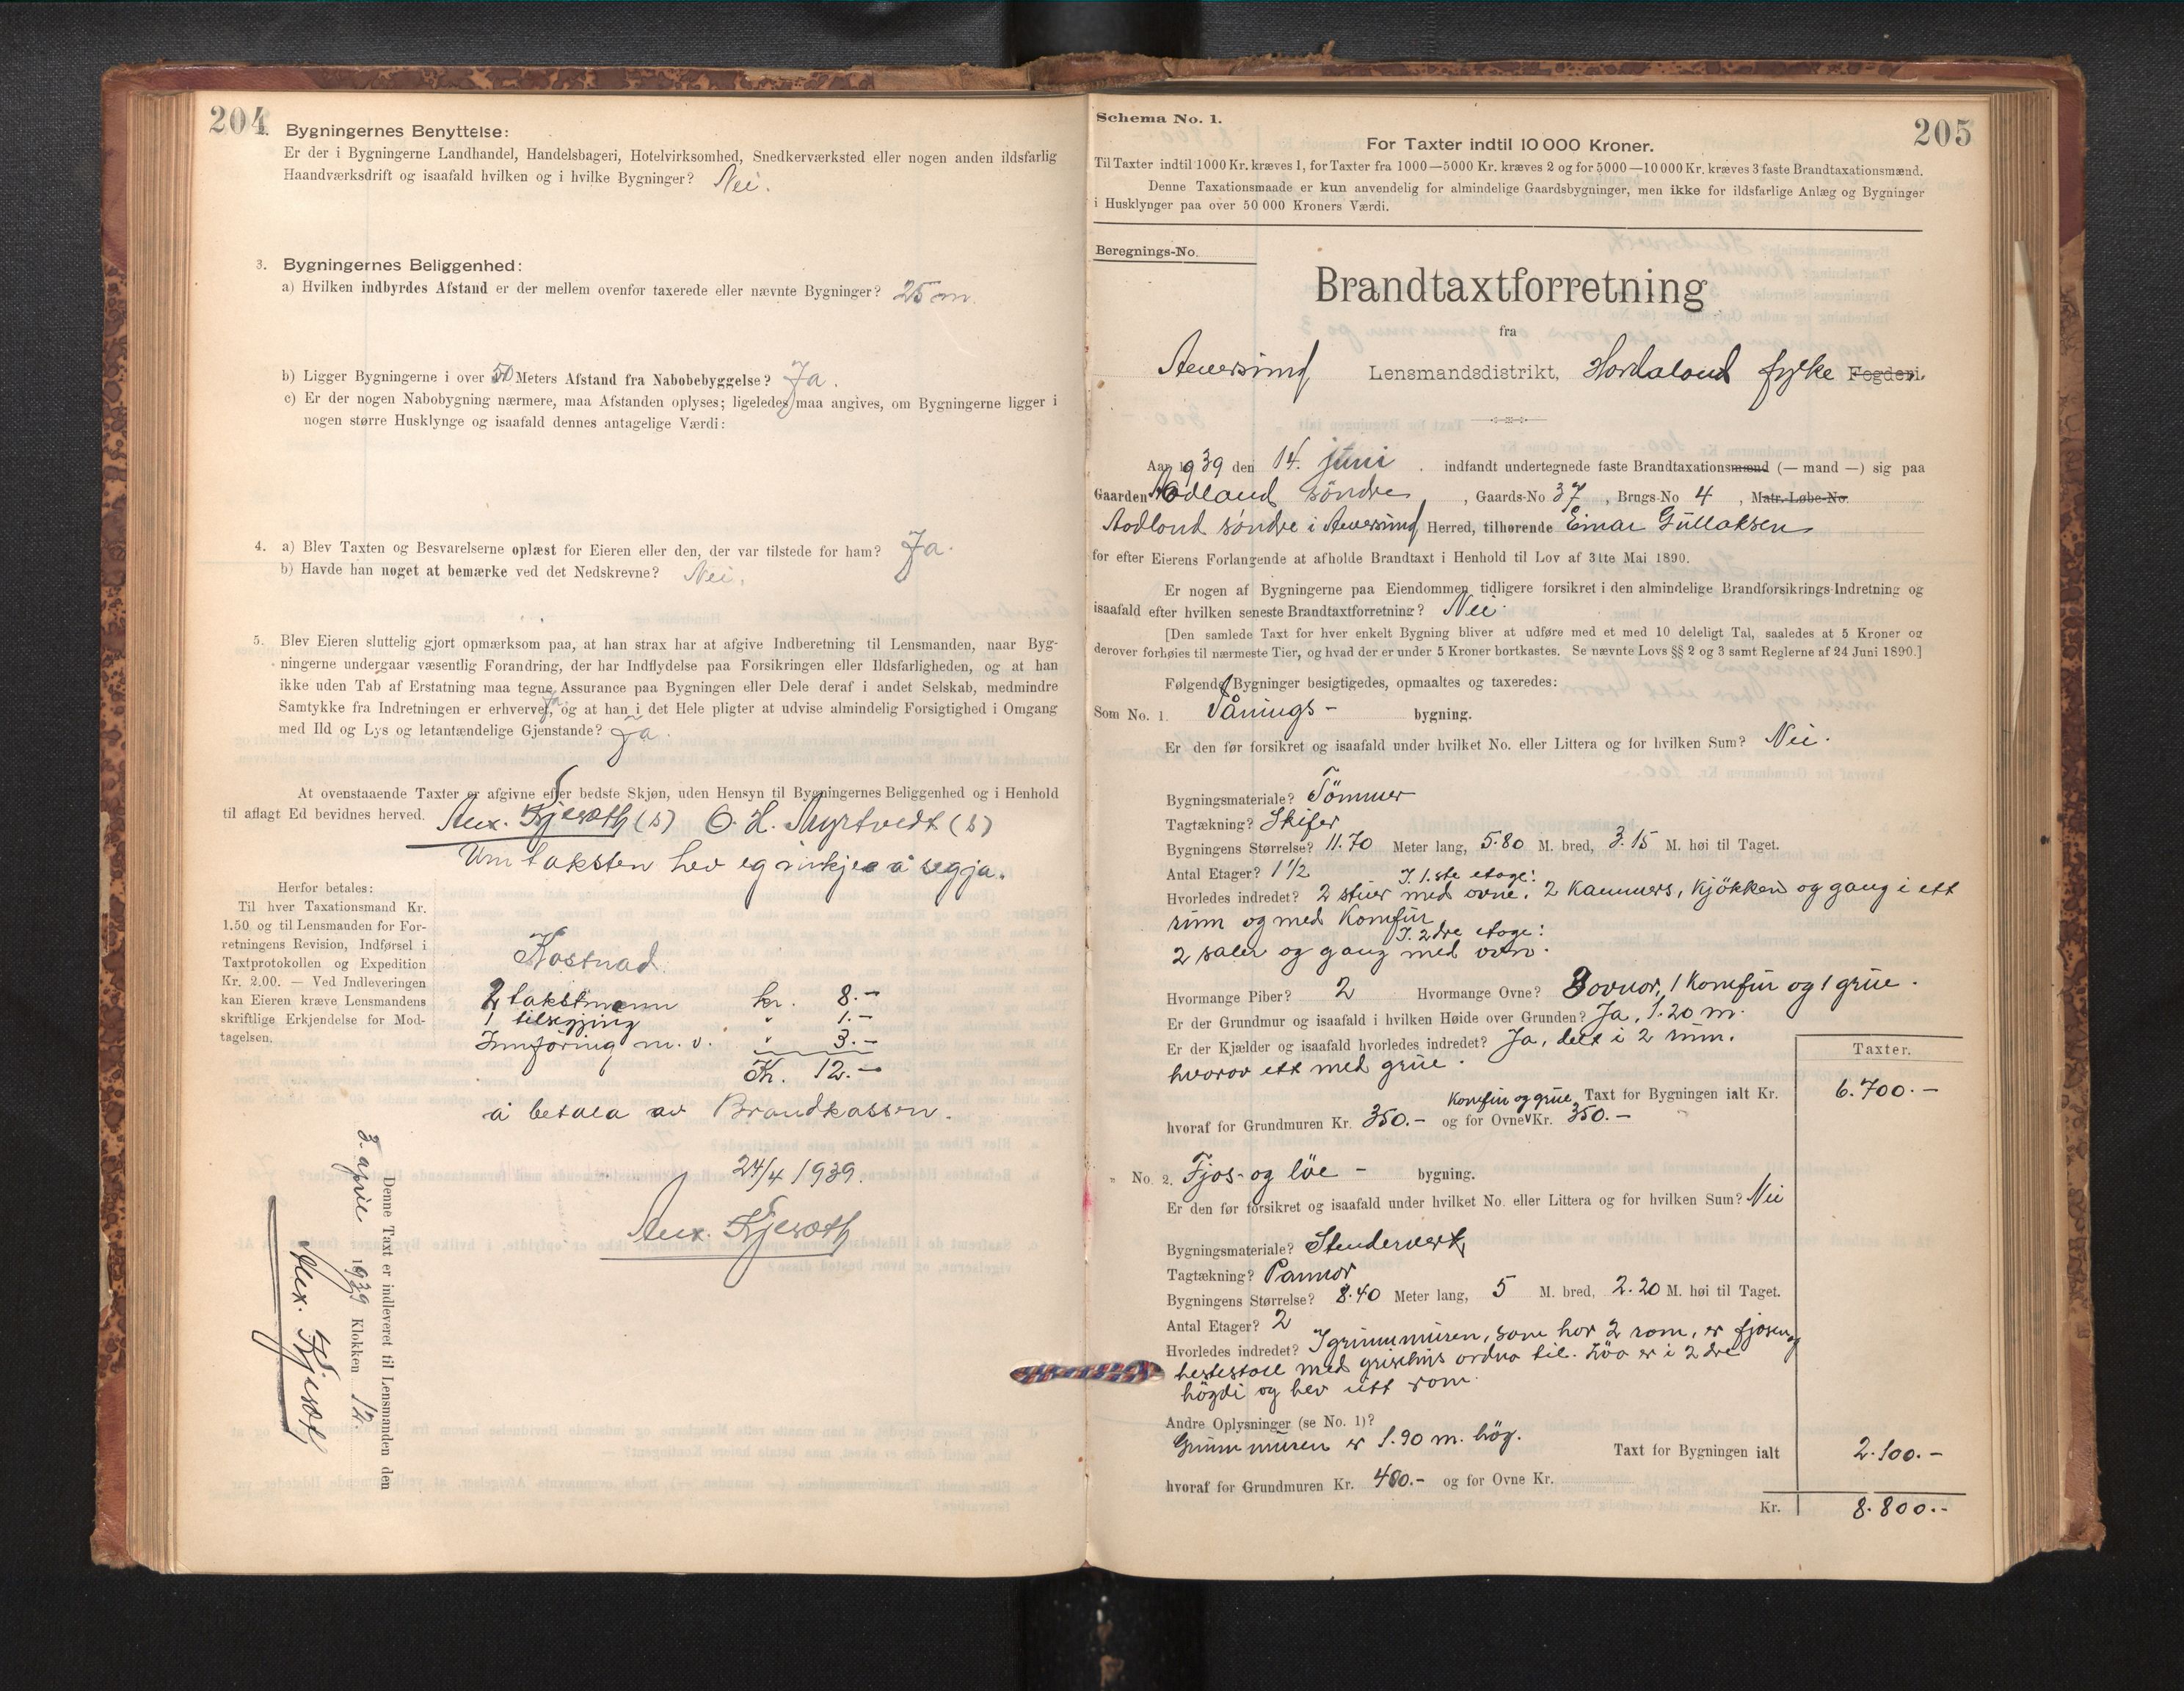 204
Bygningernes Benyttelse:
Er der i Bygningerne Landhandel, Handelsbageri, Hotelvirksomhed, Snedkerværksted eller nogen anden ildsfarlig
Haandværksdrift og isaafald hvilken og i hvilke Bygninger? Nei.
3. Bygningernes Beliggenhed:
a) Hvilken indbyrdes Afstand er der mellem ovenfor taxerede eller nævnte Bygninger? 25 m.
b) Ligger Bygningerne i over 50 Meters Afstand fra Nabobebyggelse? Ja.
c) Er der nogen Nabobygning nærmere, maa Afstanden oplyses; ligeledes maa angives, om Bygningerne ligger i
nogen større Husklynge og isaafald dennes antagelige Værdi:
4. a) Blev Taxten og Besvarelserne oplæst for Eieren eller den, der var tilstede for ham? Ja.
b) Havde han noget at bemærke ved det Nedskrevne? Nei.
5. Blev Eieren sluttelig gjort opmærksom paa, at han strax har at afgive Indberetning til Lensmanden, naar Byg-
ningerne undergaar væsentlig Forandring, der har Indflydelse paa Forsikringen eller Ildsfarligheden, og at han
ikke uden Tab af Erstatning maa tegne Assurance paa Bygningen eller Dele deraf i andet Selskab, medmindre
Samtykke fra Indretningen er erhvervet, Ja. og at han i det Hele pligter at udvise almindelig Forsigtighed i Omgang
med Ild og Lys og letantændelige Gjenstande? Ja.
At ovenstaaende Taxter er afgivne efter bedste Skjøn, uden Hensyn til Bygningernes Beliggenhed og i Henhold
til aflagt Ed bevidnes herved. O. H. Myrtvedt (s)
Um taksten hev eg inkje å segja.
Herfor betales:
Til hver Taxationsmand Kr.
1.50 og til Lensmanden for For-
retningens Revision, Indførsel i
Taxtprotokollen og Expedition
Kr. 2.00. — Ved Indleveringen
kan Eieren kræve Lensmandens
skriftlige Erkjendelse for Mod-
tagelsen.
Kostnad
2 takstmenn kr. 8.-
1 tilsegjing " 1.-
Innföring m. v. " 3.-
Kr. 12.-
å betala av Brandkassen.
24/4 1939.
Denne Taxt er indleveret til Lensmanden den
3. april 1939 Klokken 12.
205
Schema No. 1.
For Taxter indtil 10 000 Kroner.
Til Taxter indtil 1000 Kr. kræves 1, for Taxter fra 1000—5000 Kr. kræves 2 og for 5000—10 000 Kr. kræves 3 faste Brandtaxationsmænd.
Denne Taxationsmaade er kun anvendelig for almindelige Gaardsbygninger, men ikke for ildsfarlige Anlæg og Bygninger
i Husklynger paa over 50 000 Kroners Værdi.
Beregnings-No.
Brandtaxtforretning
fra
Lensmandsdistrikt, Hordaland fylke Fogderi.
Aar 1939 den 14. juni. indfandt undertegnede faste Brandtaxationsmænd (— mand —) sig paa
Gaarden Aadland söndre, Gaards-No 37, Brugs-No 4, Matr.-Løbe-No.
Aadland söndre i Herred, tilhørende Einar Gullaksen
for efter Eierens Forlangende at afholde Brandtaxt i Henhold til Lov af 31te Mai 1890.
Er nogen af Bygningerne paa Eiendommen tidligere forsikret i den almindelige Brandforsikrings-Indretning og
isaafald efter hvilken seneste Brandtaxtforretning? Nei
[Den samlede Taxt for hver enkelt Bygning bliver at udføre med et med 10 deleligt Tal, saaledes at 5 Kroner og
derover forhøies til nærmeste Tier, og hvad der er under 5 Kroner bortkastes. Se nævnte Lovs §§ 2 og 3 samt Reglerne af 24 Juni 1890.]
Følgende Bygninger besigtigedes, opmaaltes og taxeredes:
Som No. 1. Vånings- bygning.
Er den før forsikret og isaafald under hvilket No. eller Littera og for hvilken Sum? Nei.
Bygningsmateriale? Tömmer
Tagtækning? Skifer
Bygningens Størrelse? 11.70 Meter lang, 5.80 M. bred, 3.15 M. høi til Taget.
Antal Etager? 1 1/2 I 1.ste etage:
Hvorledes indredet? 2 stuer med ovne, 2 kammers, kjökken og gang i ett
rum og med komfur
I. 2dre etage:
2 saler og gang med ovn.
Hvormange Piber? 2 Hvormange Ovne? 3 ovnar, 1 komfur og 1 grue.
Er der Grundmur og isaafald i hvilken Høide over Grunden? Ja, 1.20 m.
Er der Kjælder og isaafald hvorledes indredet? Ja, delt i 2 rum.
hvorav ett med grue.
Taxter.
Taxt for Bygningen ialt Kr. 6.700.-
komfur og grue
hvoraf for Grundmuren Kr. 350.- og for Ovne Kr. 350.-
" No. 2. Fjos- og löe- bygning.
Er den før forsikret og isaafald under hvilket No. eller Littera og for hvilken Sum? Nei
Bygningsmateriale? Stenderverk
Tagtækning? Pannor
Bygningens Størrelse? 8.40 Meter lang, 5 M. bred, 2.20 M. høi til Taget.
Antal Etager? 2
Hvorledes indredet? I grunnmuren, som har 2 rom, er fjosen og
hestestall med grisehus ordna til. Löa er i 2 dre
högdi og hev ett rom.
Andre Oplysninger (se No. 1)?
Grunnmuren er 1.90 m. hög.
Taxt for Bygningen ialt 2.100.-
hvoraf for Grundmuren Kr. 480.- og for Ovne Kr.
Kr. 8.800.-